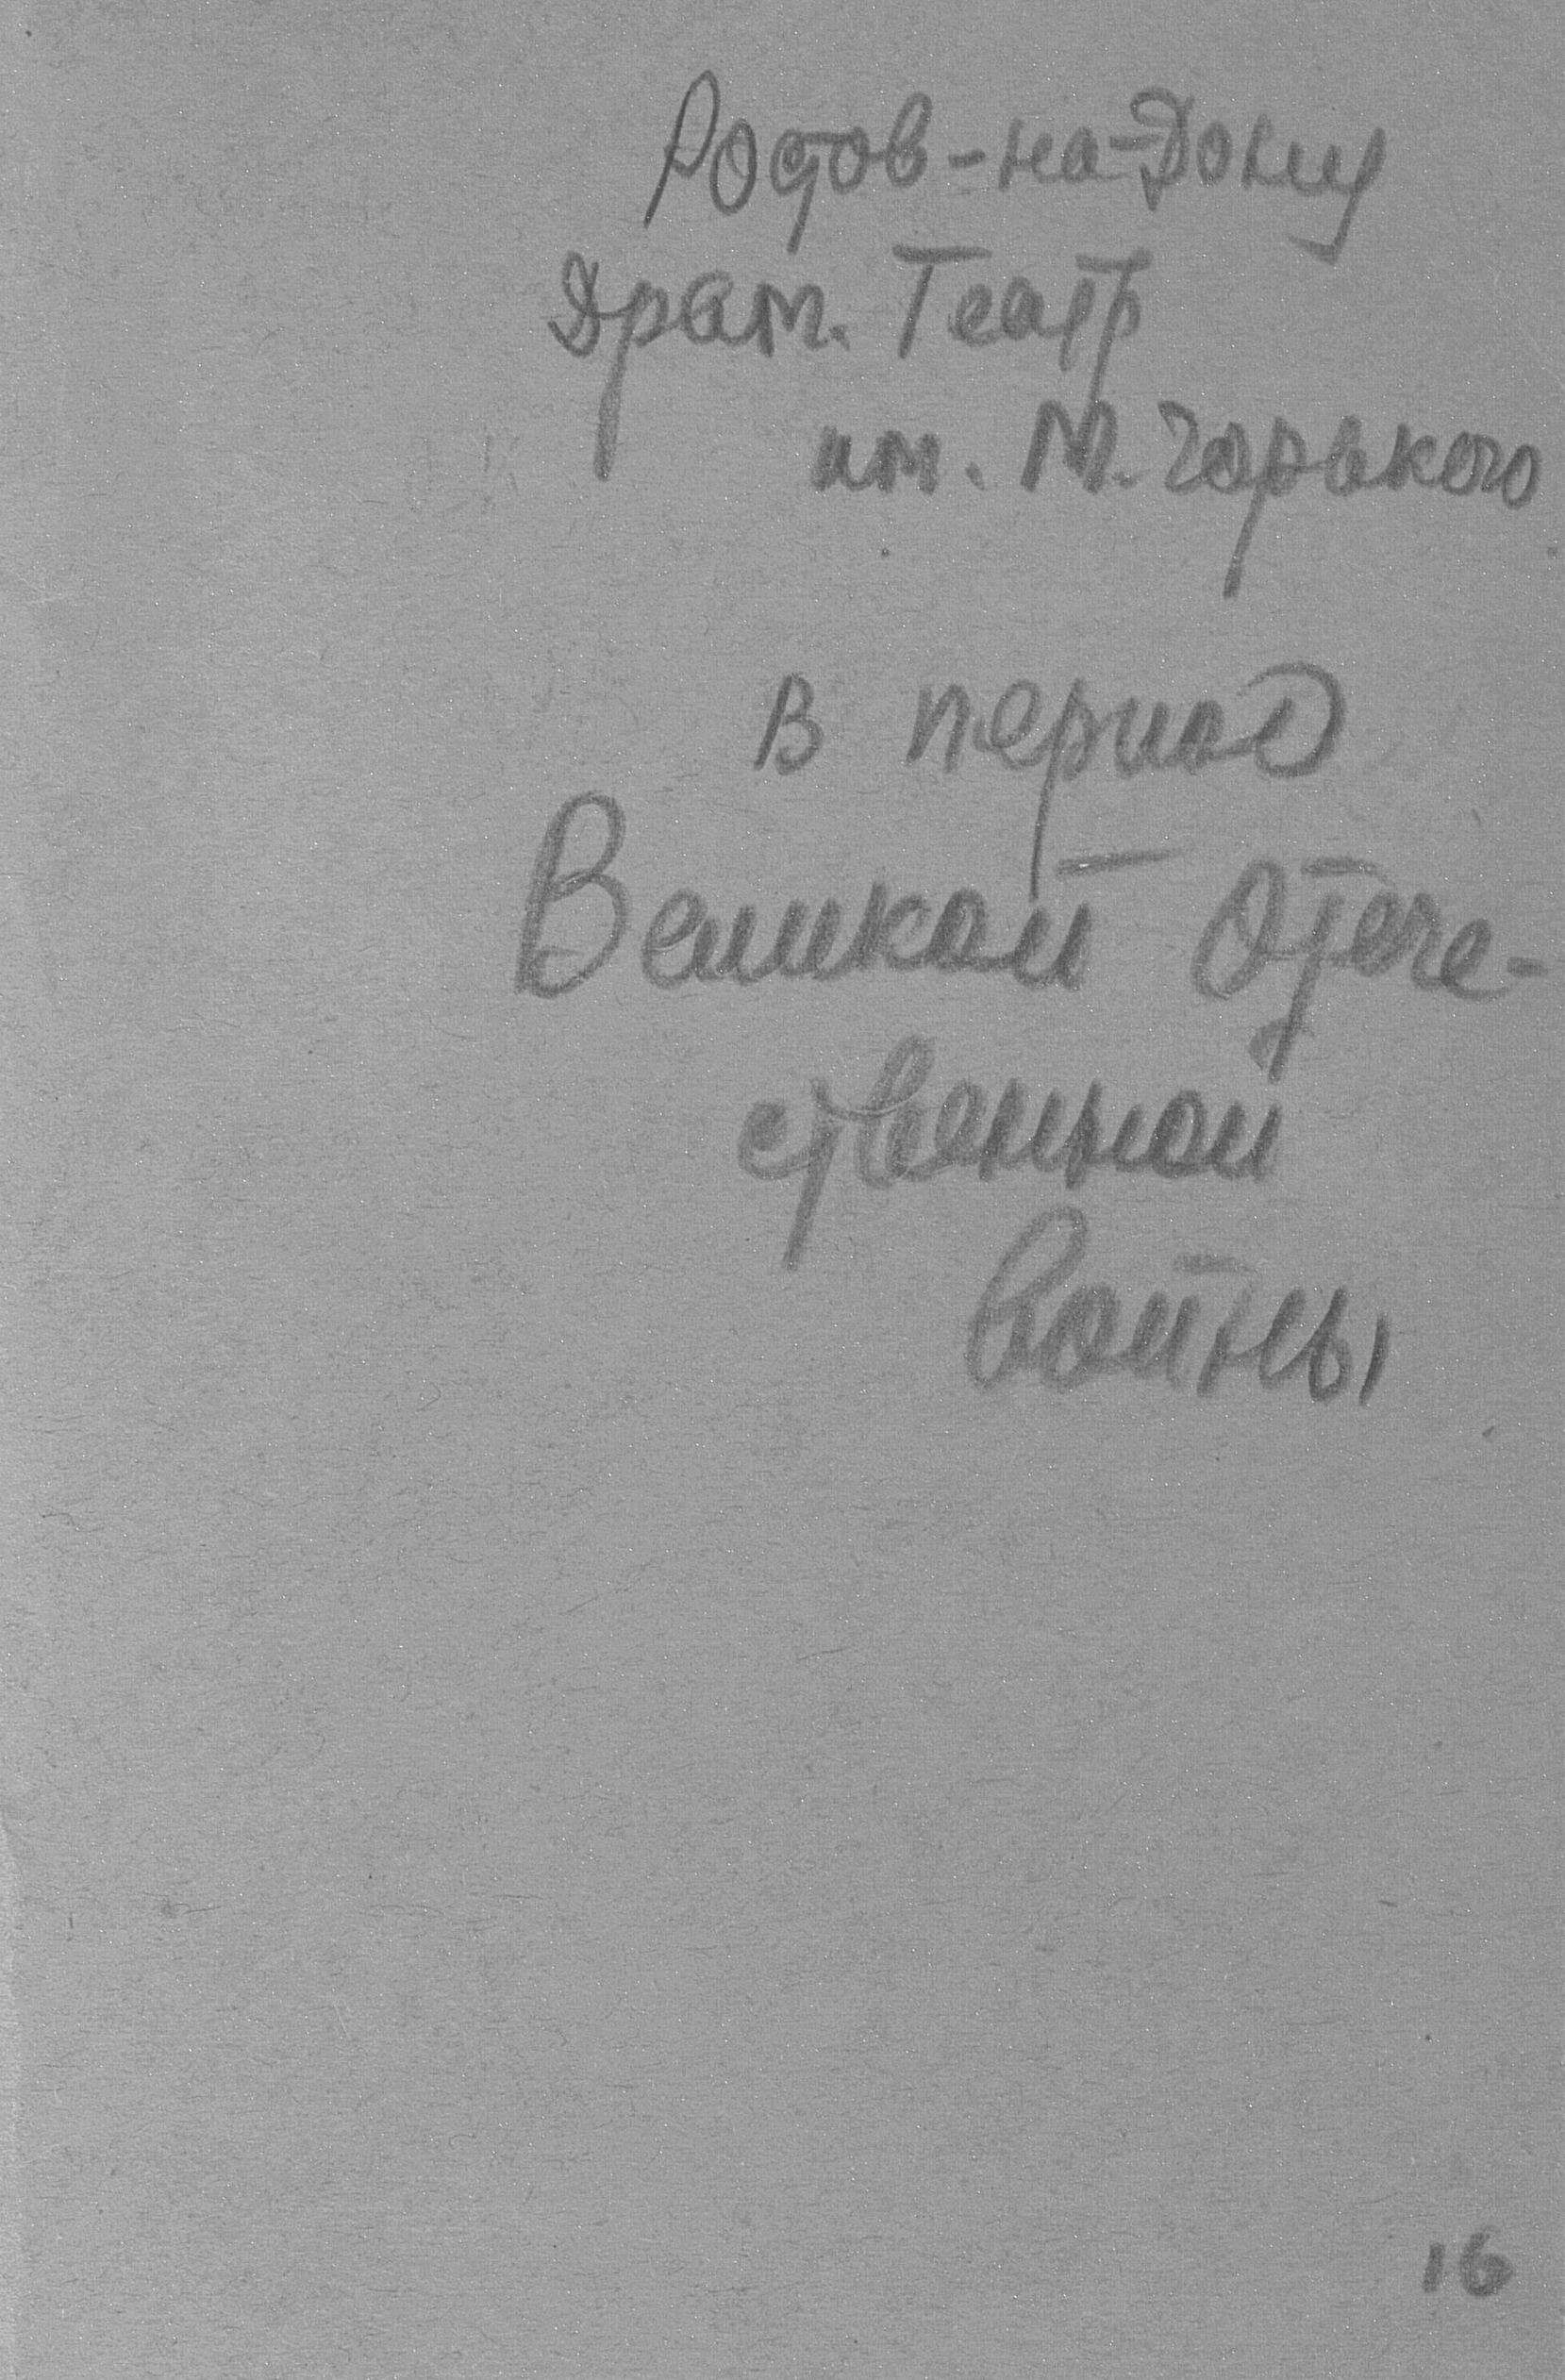 Ростов-на-Дону
Драм. Театр
им. М. Горького
в период
Великой Отече-
ственной
Войны
16